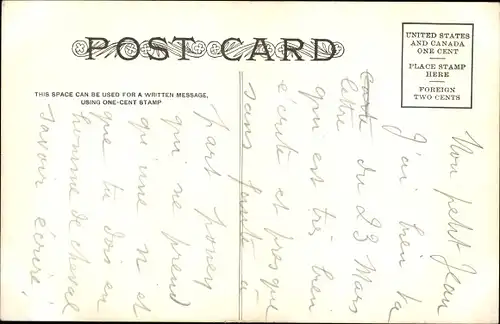 POST CARD
THIS SPACE CAN BE USED FOR A WRITTEN MESSAGE,
USING ONE-CENT STAMP
UNITED STATES
AND CANADA
ONE CENT
PLACE STAMP
HERE
FOREIGN
TWO CENTS
Mon petit Jean
J'ai bien ta
carte
lettre du 23 Mars
qui est très bien
écrite et presque
sans faute à
part poney
qui ne prend
qu'une n et
que tu dois en
homme de cheval
savoir écrire!